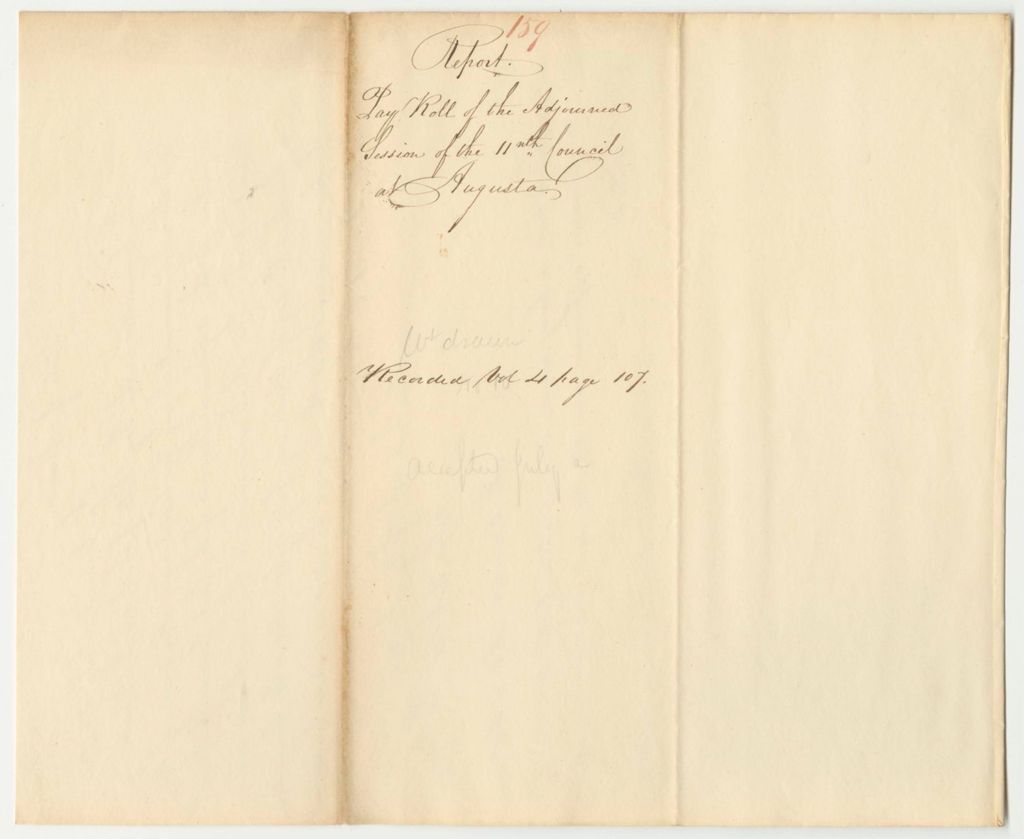 159
Report.
Pay Roll of the Adjourned
Session of the 11nth Council
at Augusta.
Wt drawn
Recorded Vol 4 page 107.
accepted July 2